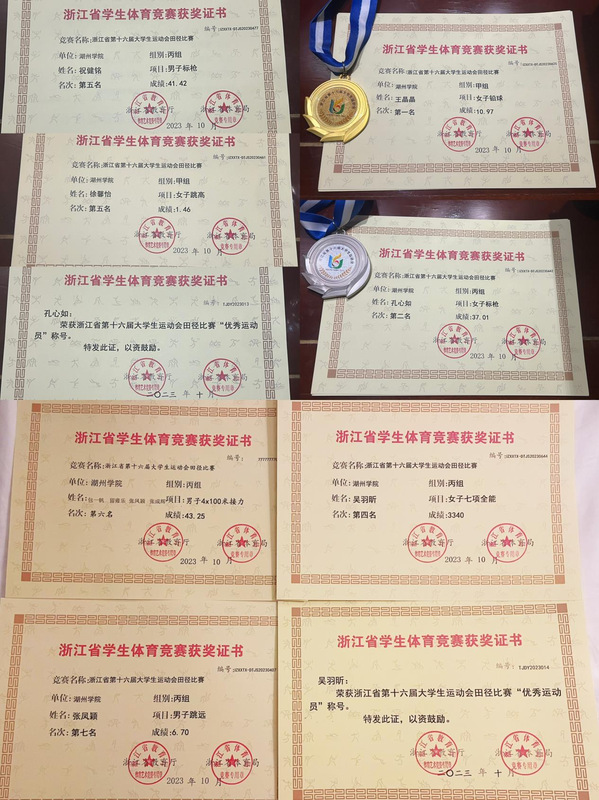 浙江省学生体育竞赛获奖证书
竞赛名称:浙江省第十六届大学生运动会田径比赛
单位:湖州学院 组别:丙组
姓名:祝健铭 项目:男子标枪
名次:第五名 成绩:41.42
2023 年 10 月
浙江省学生体育竞赛获奖证书
竞赛名称:浙江省第十六届大学生运动会田径比赛
单位:湖州学院 组别:甲组
姓名:王晶晶 项目:女子铅球
名次:第一名 成绩:10.97
2023 年 10 月
浙江省学生体育竞赛获奖证书
竞赛名称:浙江省第十六届大学生运动会田径比赛
单位:湖州学院 组别:甲组
姓名:徐馨怡 项目:女子跳高
名次:第五名 成绩:1.46
2023 年 10 月
浙江省学生体育竞赛获奖证书
竞赛名称:浙江省第十六届大学生运动会田径比赛
单位:湖州学院 组别:丙组
姓名:孔心如 项目:女子标枪
名次:第二名 成绩:37.01
2023 年 10 月
浙江省学生体育竞赛获奖证书
编号:TJDY2023013
孔心如:
荣获浙江省第十六届大学生运动会田径比赛“优秀运动
员”称号。
特发此证,以资鼓励。
二〇二三 年 十 月
浙江省学生体育竞赛获奖证书
编号:
竞赛名称:浙江省第十六届大学生运动会田径比赛
单位:湖州学院 组别:丙组
姓名: 项目:男子4x100米接力
名次:第六名 成绩:43.25
2023 年 10 月
浙江省学生体育竞赛获奖证书
编号:JZXXTX-DTJB20230644
竞赛名称:浙江省第十六届大学生运动会田径比赛
单位:湖州学院 组别:丙组
姓名:吴羽昕 项目:女子七项全能
名次:第四名 成绩:3340
2023 年 10 月
浙江省学生体育竞赛获奖证书
竞赛名称:浙江省第十六届大学生运动会田径比赛
单位:湖州学院 组别:丙组
姓名:张凤颖 项目:男子跳远
名次:第七名 成绩:6.70
2023 年 10 月
浙江省学生体育竞赛获奖证书
编号:TJDY2023014
吴羽昕:
荣获浙江省第十六届大学生运动会田径比赛“优秀运动
员”称号。
特发此证,以资鼓励。
二〇二三 年 十 月